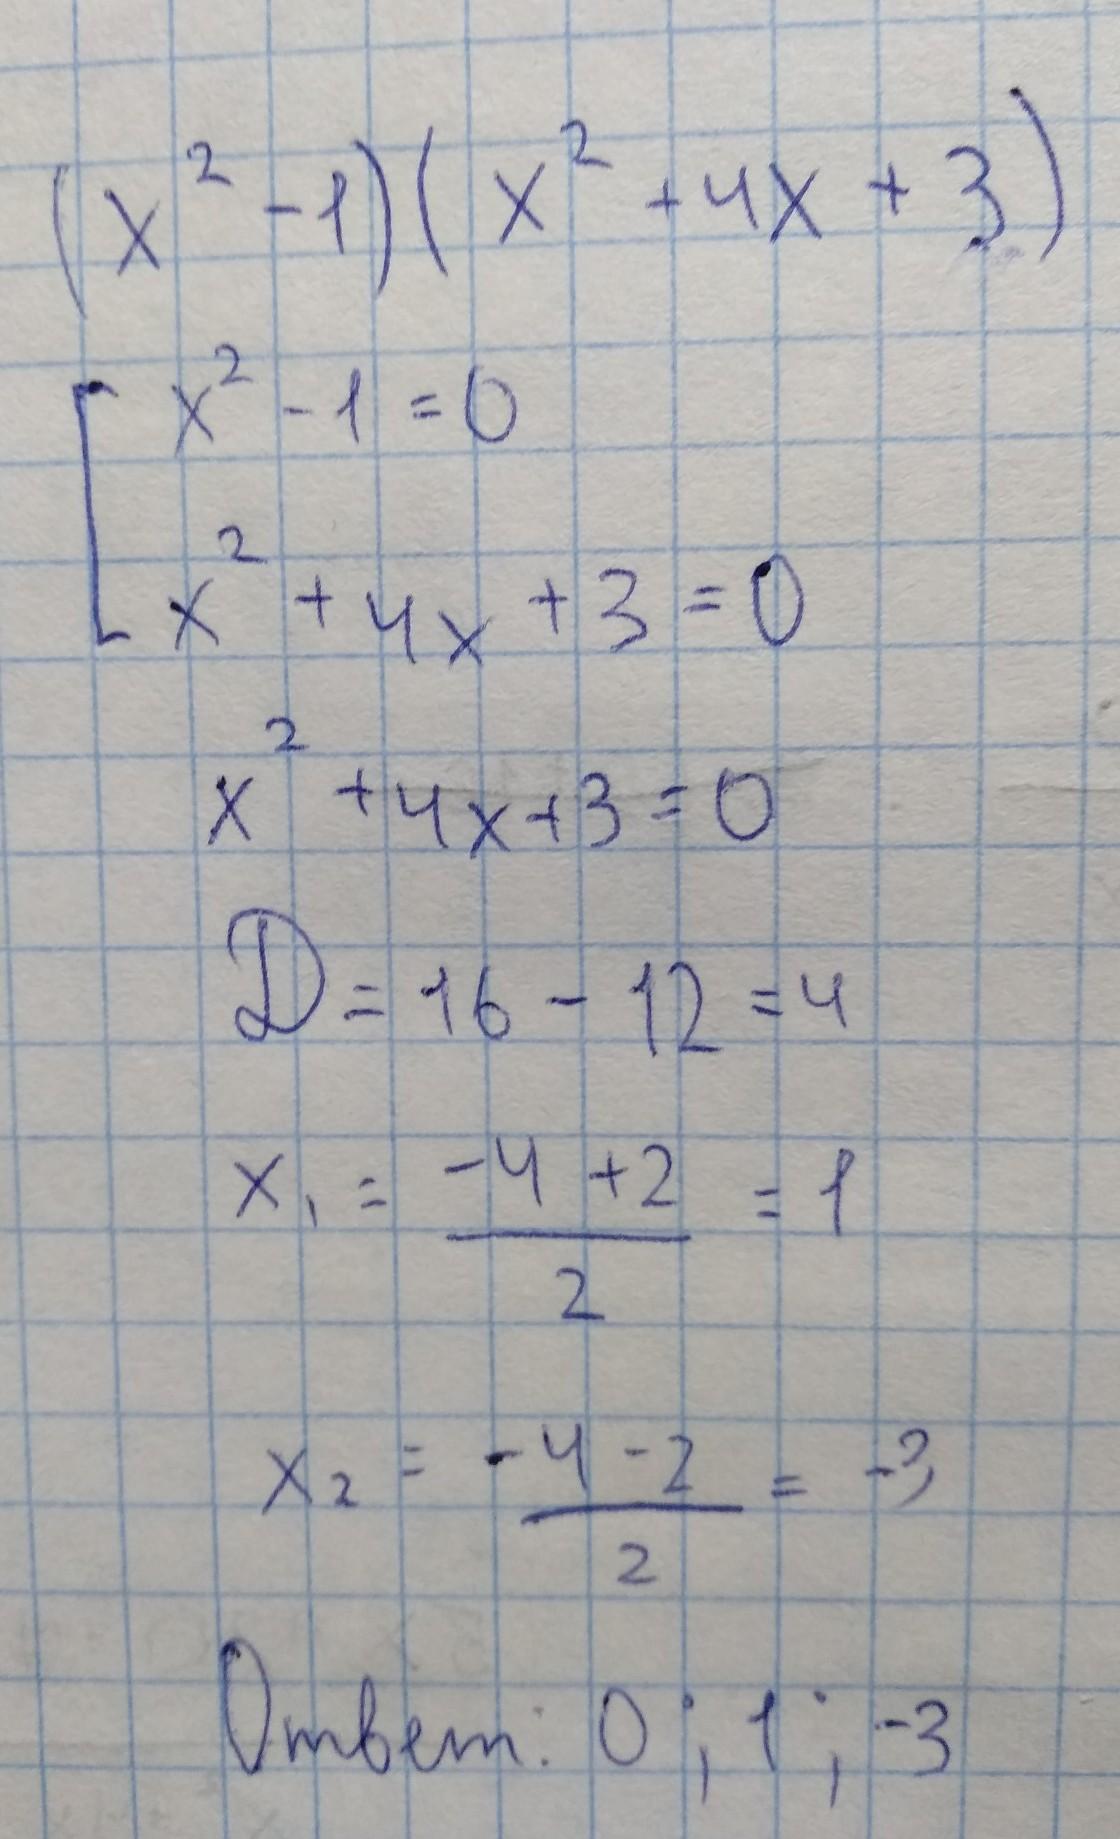 (x² - 1)(x² + 4x + 3)
[ x² - 1 = 0
x² + 4x + 3 = 0
x² + 4x + 3 = 0
D = 16 - 12 = 4
x₁ = (-4 + 2)/2 = 1
x₂ = (-4 - 2)/2 = -3
Ответ: 0; 1; -3